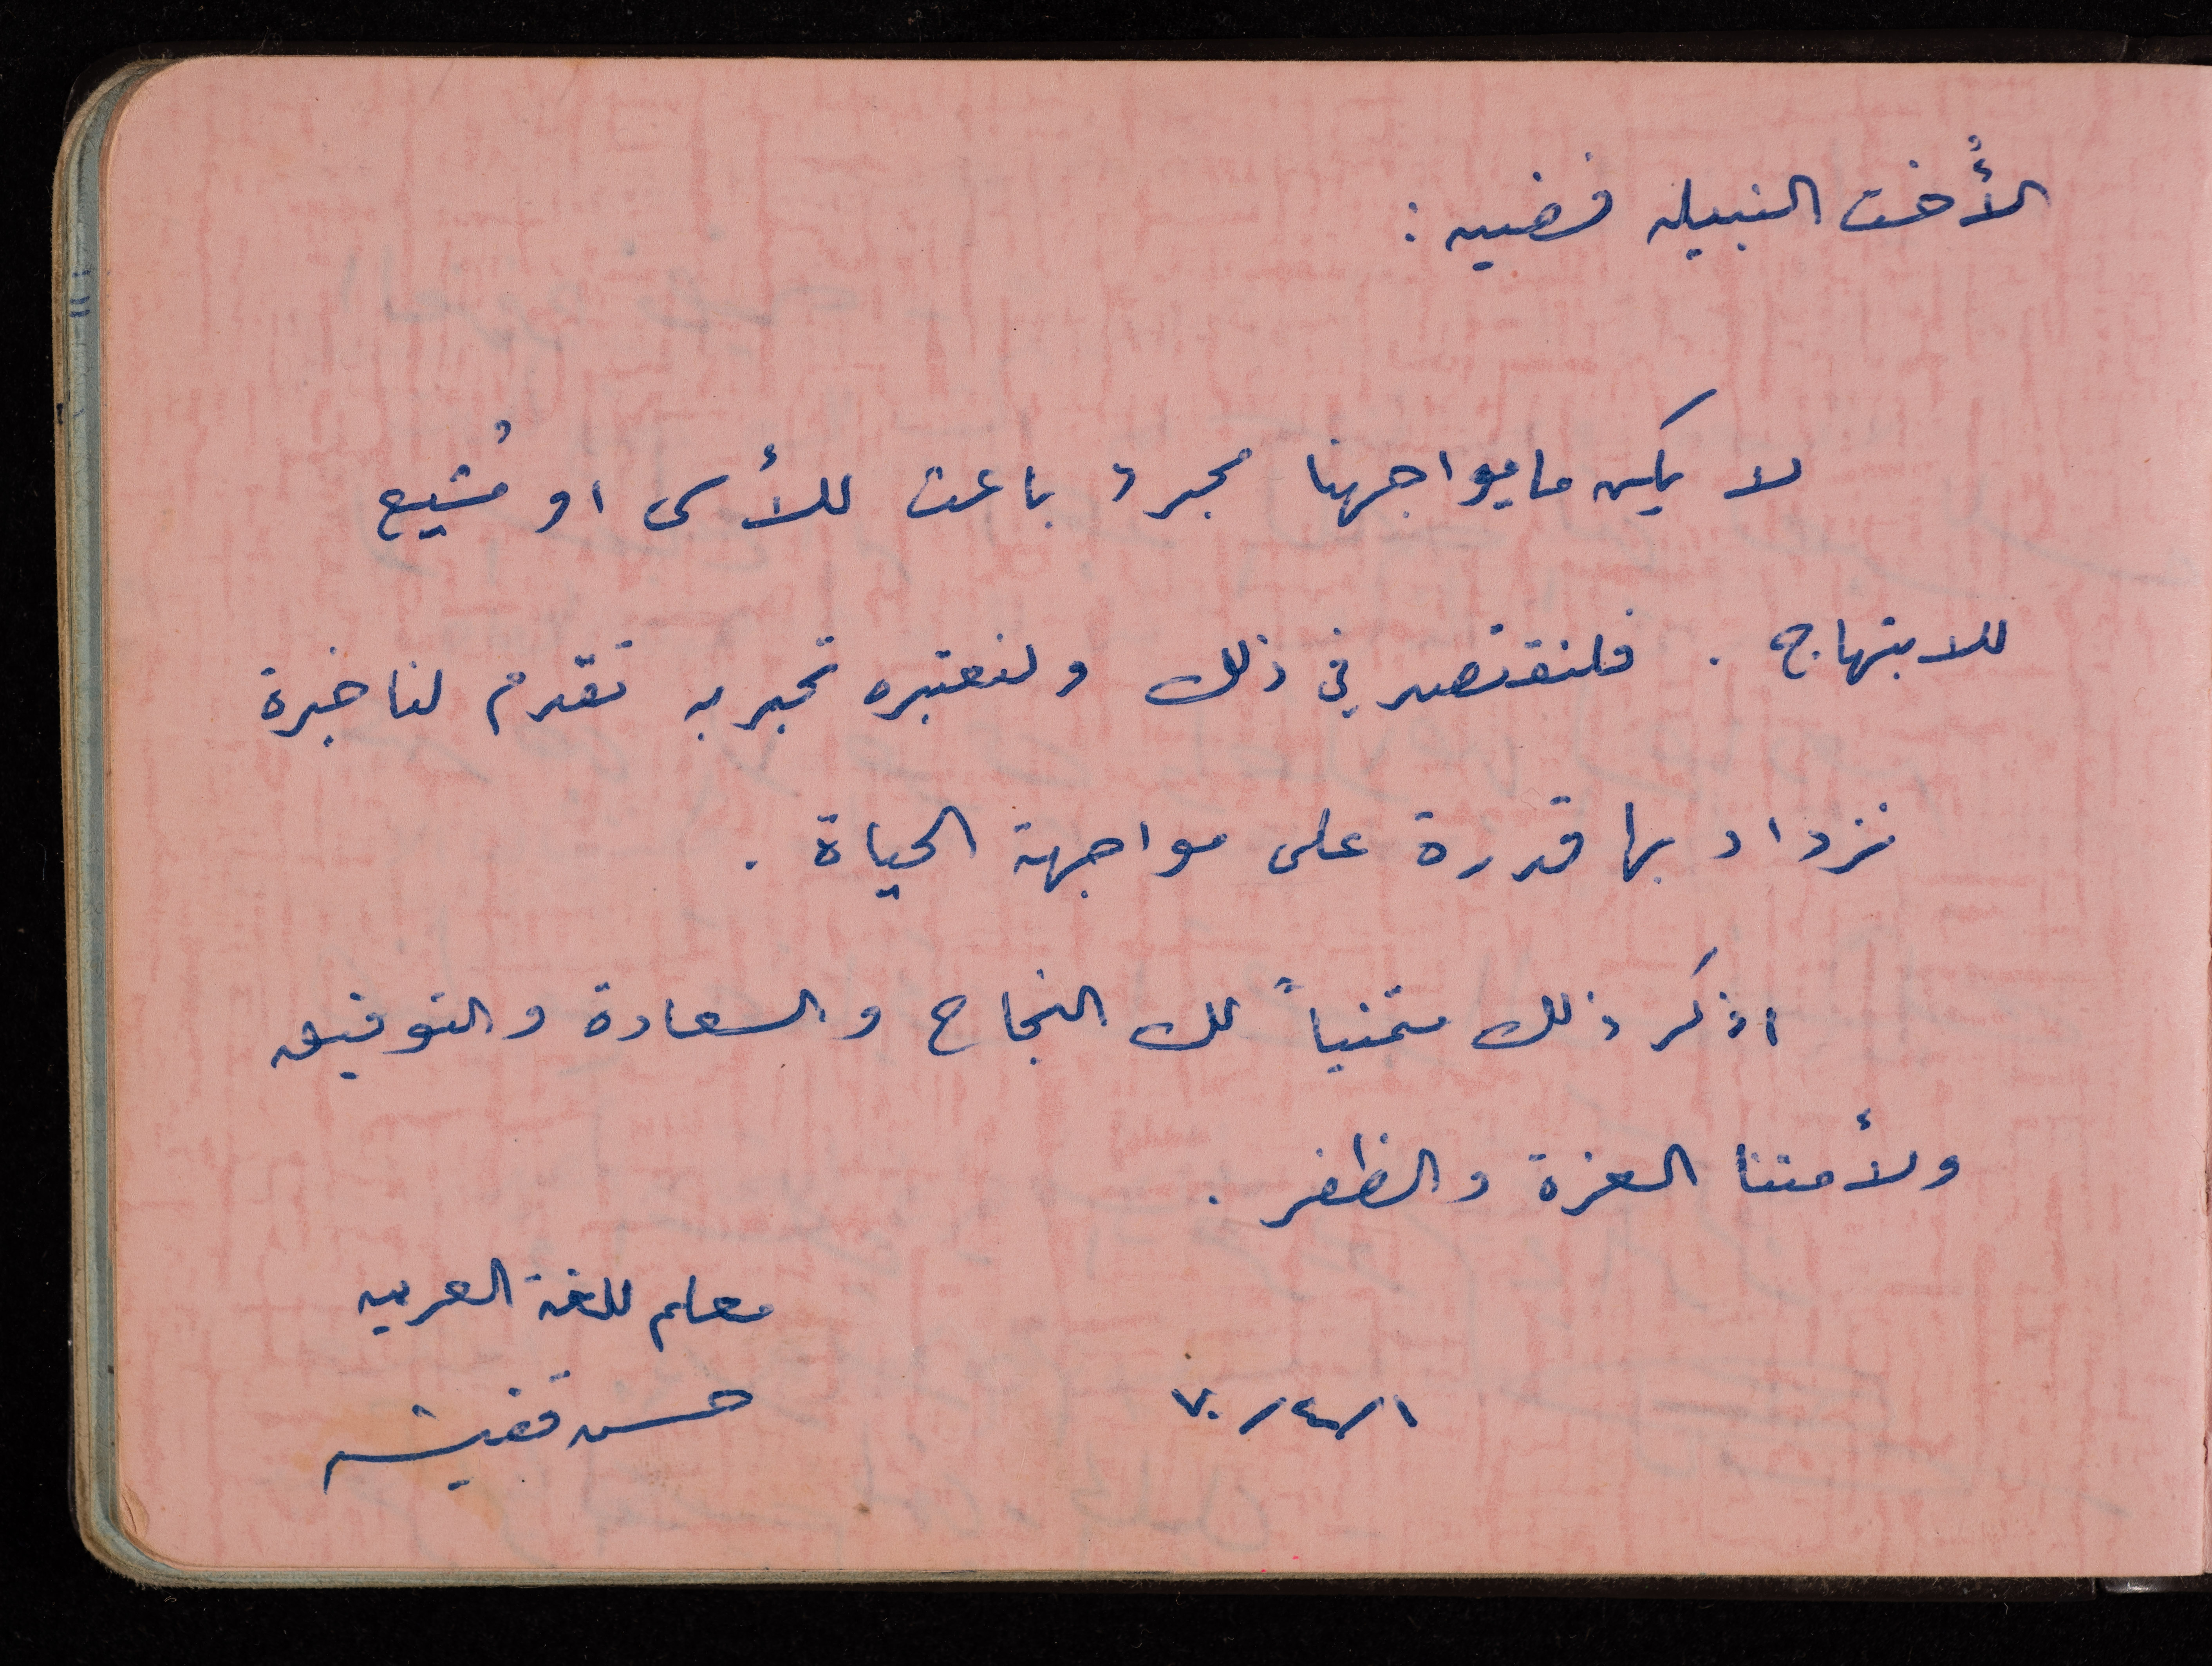 الأُخت النبيله فضيه :
لا يكن ما يواجهنا مجرد باعث للأسى او مُشيع
للابتهاج . فلنقتصد في ذلك ولنعتبره تجربه تقدم لنا خبرة
نزداد بها قدرة على مواجهة الحياة .
اذكر ذلك متمنياً لك النجاح والسعادة والتوفيق
ولأمتنا العزة والظفر .
معلم اللغة العربيه
١/٤/٧٠
حسن قفيشه